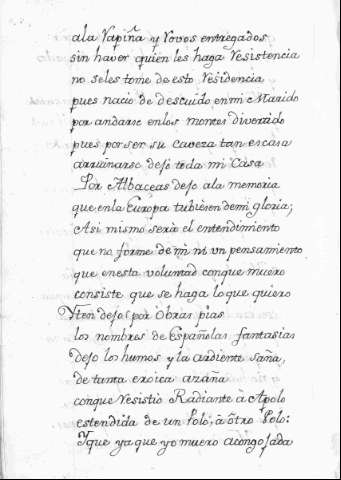 ala Rapiña y Rovos entregados
sin haver quien les haga Resistencia
no seles tome de esto Residencia
pues nacio de descuido en mi Marido
por andarse enlos montes divertido
pues por ser su caveza tan escasa
arruinarse dejo toda mi Casa
Por Albaceas dejo ala memoria
que enla Europa tubiesen demi gloria;
Asi mismo sera el entendimiento
que no forme de mi ni un pensamiento
que enesta voluntad conque muero
consiste que se haga loque quiero
Yten dejo; por obras pias
los nombres de Españolas fantasias
dejo los humos y la ardiente saña,
de tanta eroica azaña
conque Resistio Radiante à Apolo
estendida de un Polo, à ôtro Polo:
Yque ya que yo muero acongojada